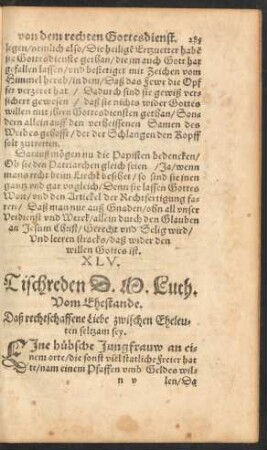 von dem rechten Gottesdienst. 285
legen/nemlich also/Die heilige Ertzuetter habē
sje Gottesdienste gethan/die jm auch Gott hat
gefallen lassen/vnd bestetiget mit Zeichen vom
Himmel herab/in dem/Daß das Fewr die Opf
fer verzeret hat / Dadurch sind sie gewiß ver-
sichert gewesen / daß sie nichts wider Gottes
willen mit jhren Gottesdiensten gethan/Son
dern allein auff den verheissenen Samen des
Weibes gehofft/der der Schlangen den Kopff
solt zutretten.
Daraus mögen nu die Papisten bedencken/
Ob sie den Patriarchen gleich seien / Ja/wenn
mans recht beim Liecht besihet/so sind sie jnen
gantz vnd gar vngleich/Denn sie lassen Gottes
Wort/vnd den Artickel der Rechtfertigung fa-
ren/ Daß man nur auß Gnaden/ohn all vnser
Verdienst vnd Werck/allein durch den Glauben
an Jesum Christ/Gerecht vnd Selig wird/
Vnd leeren stracks/daß wider den
willen Gottes ist.
XLV.
Tischreden D. M. Luth.
Vom Ehestande.
Daß rechtschaffene Liebe zwischen Eheleu-
ten seltzam sey.
EJne hübsche Jungfrauw an ei-
nem orte/die sonst viel statliche Freier hat
te/nam einem Pfaffen vmb Geldes wil-
n v len/Da